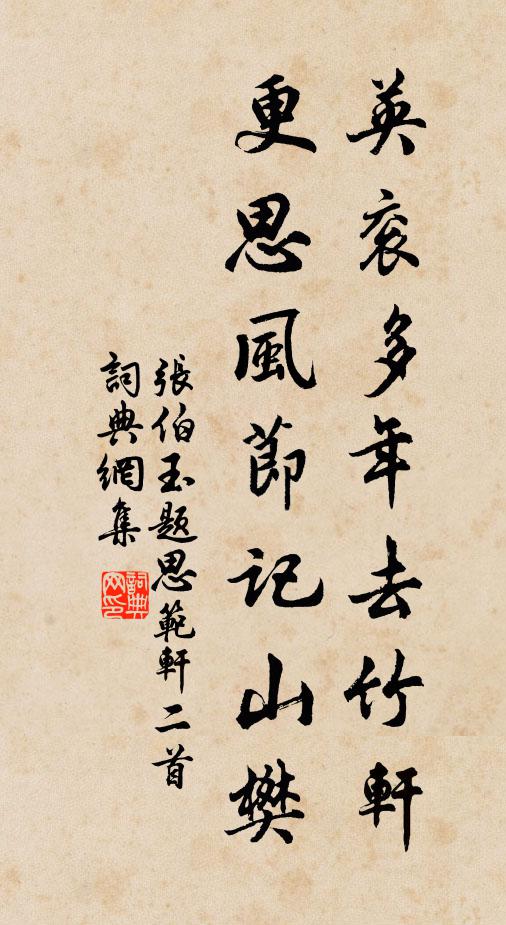 英衮多年去竹軒
更思風節記山樊
張伯玉題思範軒二首
詞典網集
詞典网印